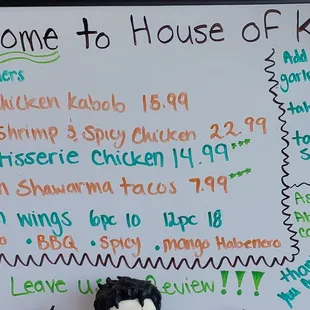 ome to House of K
ers
chicken kabob 15.99
Shrimp & Spicy Chicken 22.99
tisserie Chicken 14.99***
n Shawarma tacos 7.99***
n wings 6pc 10 12pc 18
o • BBQ • Spicy • mango Habenero
Leave us eview!!!
Add
garl
ta
to
S
As
Ab
co
than
you